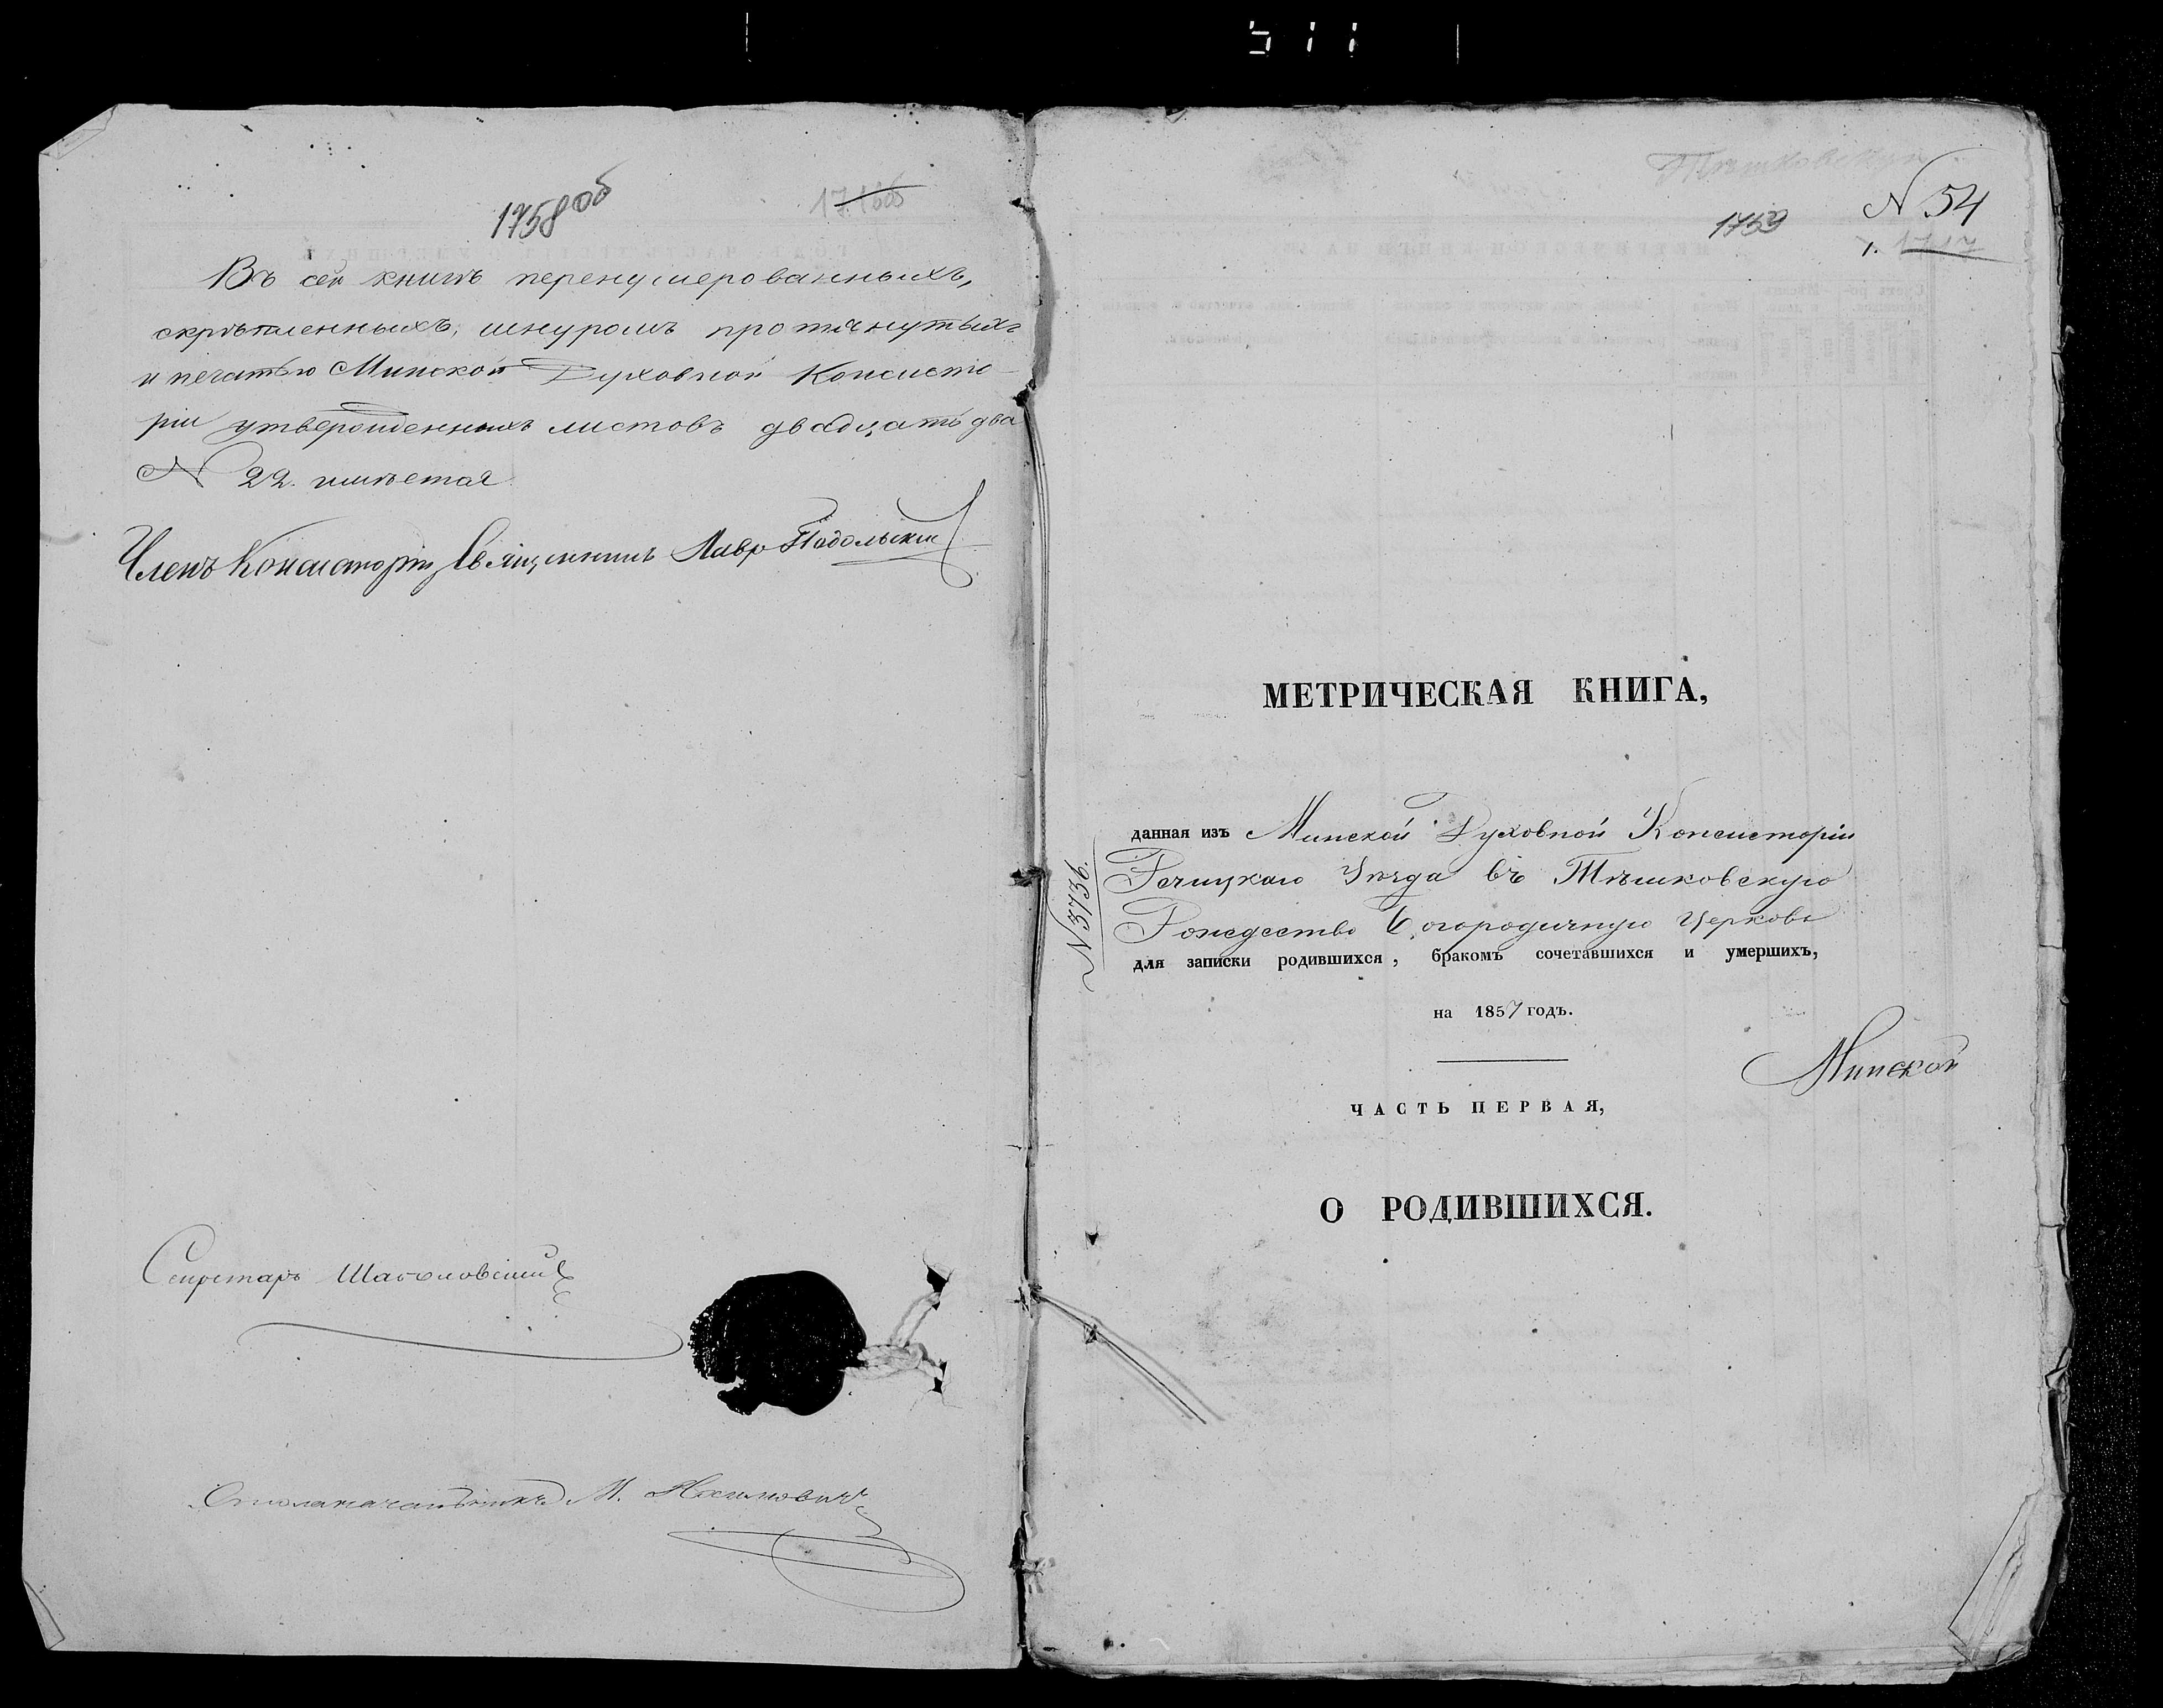 511
1758 об
Въ сей книгѣ перенумерованныхъ,
скрѣпленныхъ, шнуромъ протянутыхъ
и печатью Минской Духовной Консисто-
ріи утвержденныхъ листовъ двадцать два
№ 22. имѣется
Членъ Консисторіи Священникъ Лавр Подольскій
Секретарь
Столоначальникъ М.
Тѣшковская
№ 54
1759
1. 1717
МЕТРИЧЕСКАЯ КНИГА,
данная изъ Минской Духовной Консисторіи
Речицкаго Уѣзда въ Тѣшковскую
Рождество Богородичную Церковь
для записки родившихся, бракомъ сочетавшихся и умершихъ,
№ 3736.
на 1857 годъ.
Минской
ЧАСТЬ ПЕРВАЯ,
О РОДИВШИХСЯ.